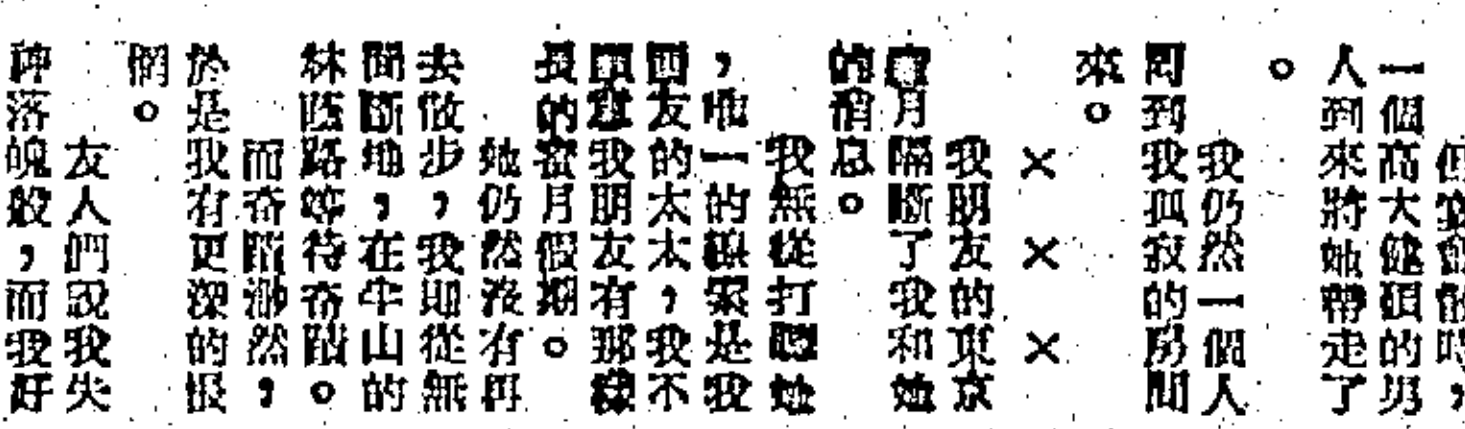 一個高大健碩的男
人到來將她帶走了
。
我仍然一個人
回到我孤寂的房間
來。
×　×　×
我朋友的東京
蜜月隔斷了我和她
的消息。
我無從打聽她
，唯一的線索是我
友的太太，我不
願意我朋友有那樣
長的蜜月假期。
她仍然沒有再
去散步，我則從無
間斷地，在半山的
林蔭路等待奇蹟。
而奇蹟渺然，
於是我有更深的恨
惘。
友人們說我失
神落魄般，而我好